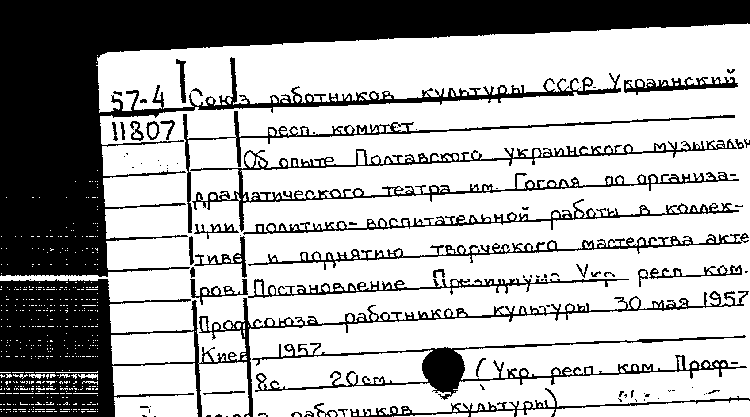 57-4 Союз работников культуры СССР. Украинский
11807 респ. комитет
Об опыте Полтавского украинского музыкальн
драматического театра им. Гоголя по организа-
ции политико-воспитательной работы в коллек-
тиве и поднятию творческого мастерства акте
ров. Постановление Президиума Укр. респ. ком.
Профсоюза работников культуры 30 мая 1957
Киев, 1957.
8с. 20см. (Укр. респ. ком. Проф-
работников культуры)